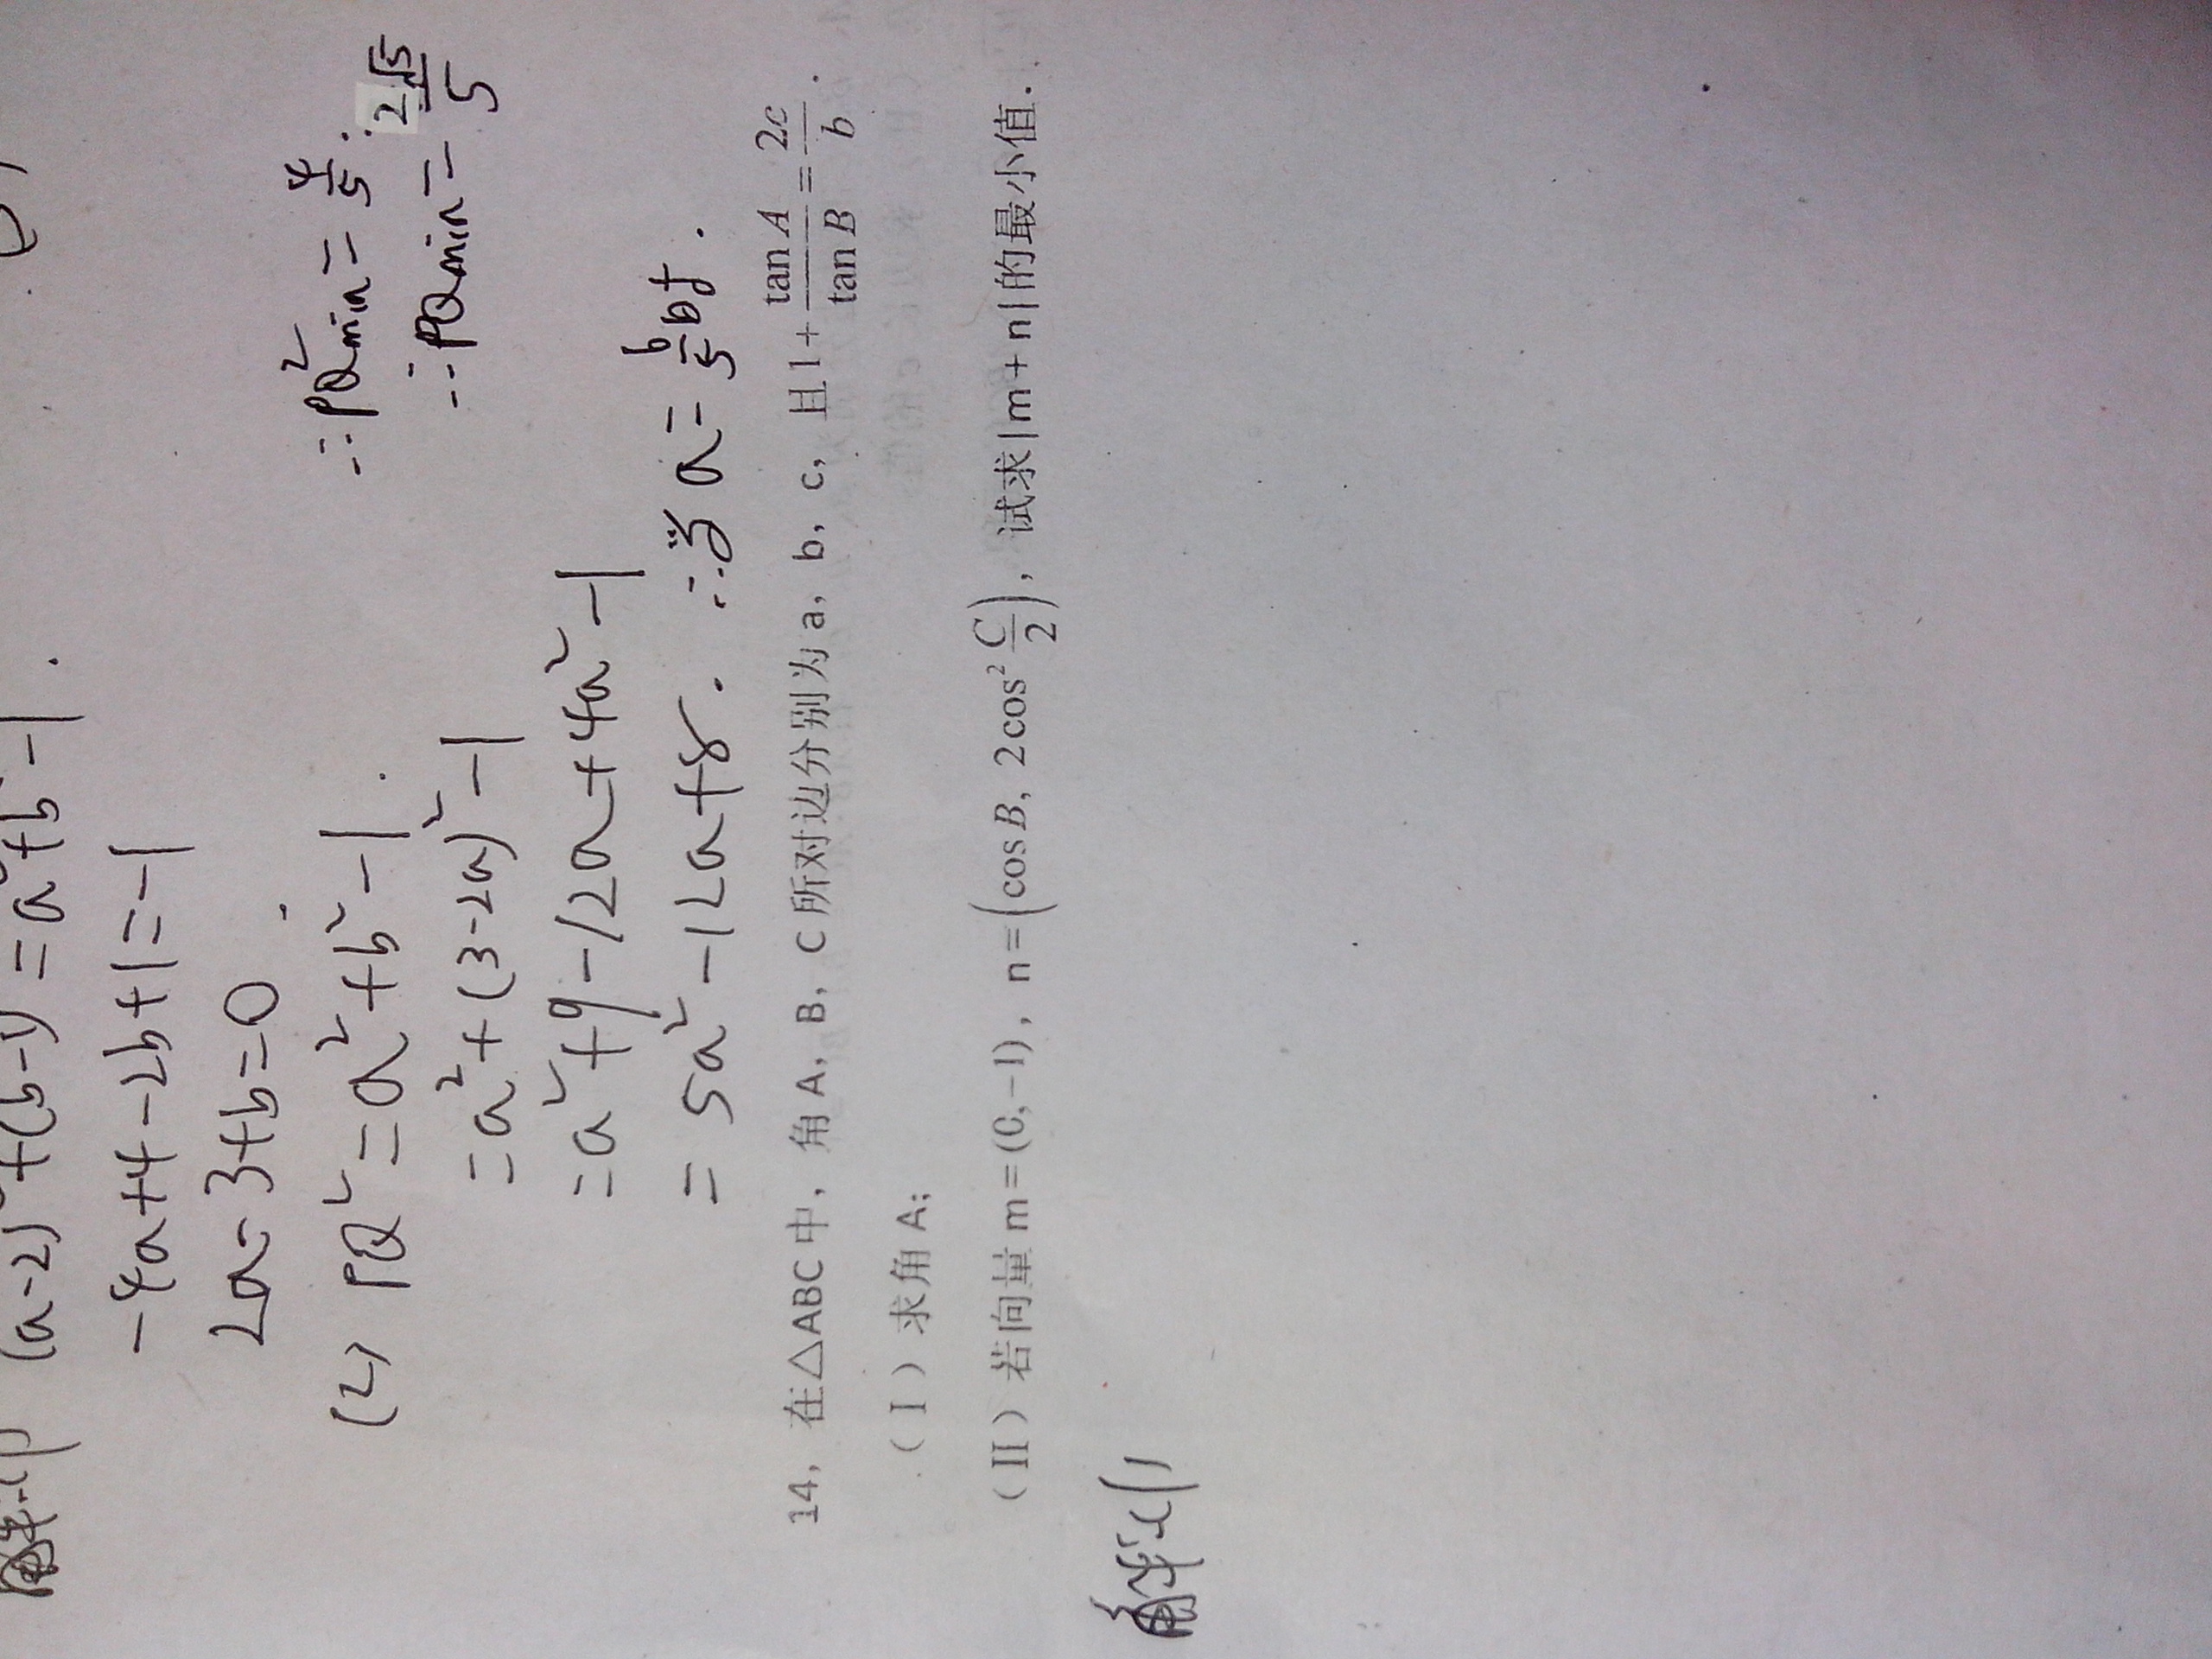 解:(1) (a-2)²+(b-1)²=a²+b²-1.
-4a+4-2b+1=-1
2a-3+b=0
(2) PQ²=a²+b²-1
=a²+(3-2a)²-1
=a²+9-12a+4a²-1
=5a²-12a+8. ∴当a=6/5时.
∴PQ²min=4/5.
∴PQmin=2√5/5
14, 在△ABC中, 角A, B, C所对边分别为a, b, c, 且1+tan A/tan B=2c/b.
(I) 求角A;
(II) 若向量m=(0,-1), n=(cos B, 2cos² C/2), 试求|m+n|的最小值.
解:(1)